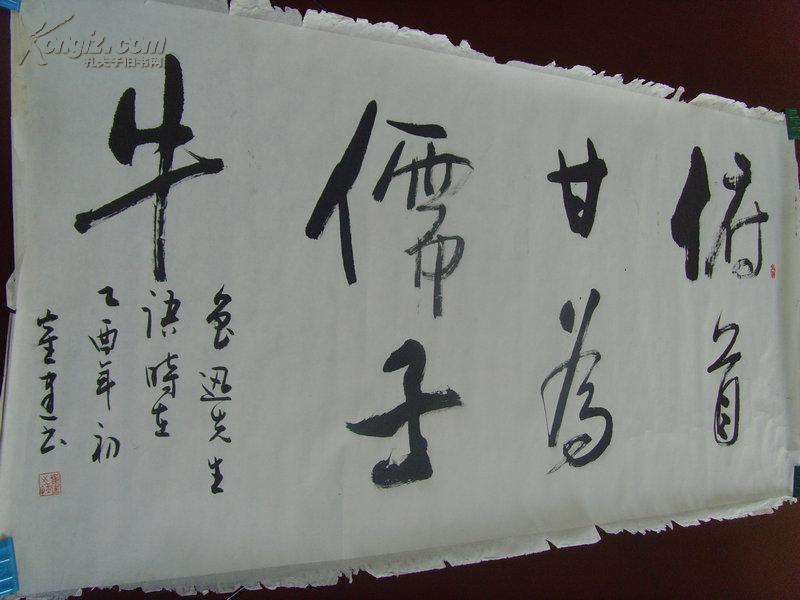 俯首
甘为
儒子
牛
鲁迅先生
语时在
乙酉年初
童建书
Kongfz.com
孔夫子旧书网